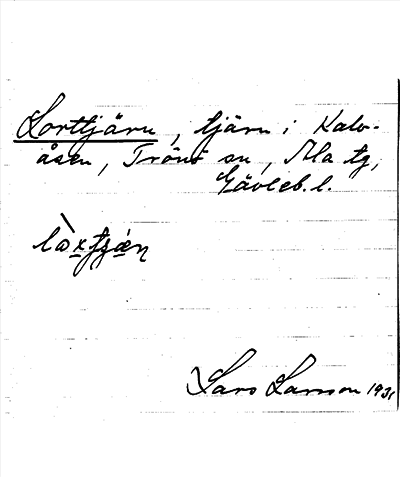 Lorttjärn, tjärn i Kalv-
åsen, Trönö sn, Ala tg,
Gävleb. l.
Lars Larsson 1931